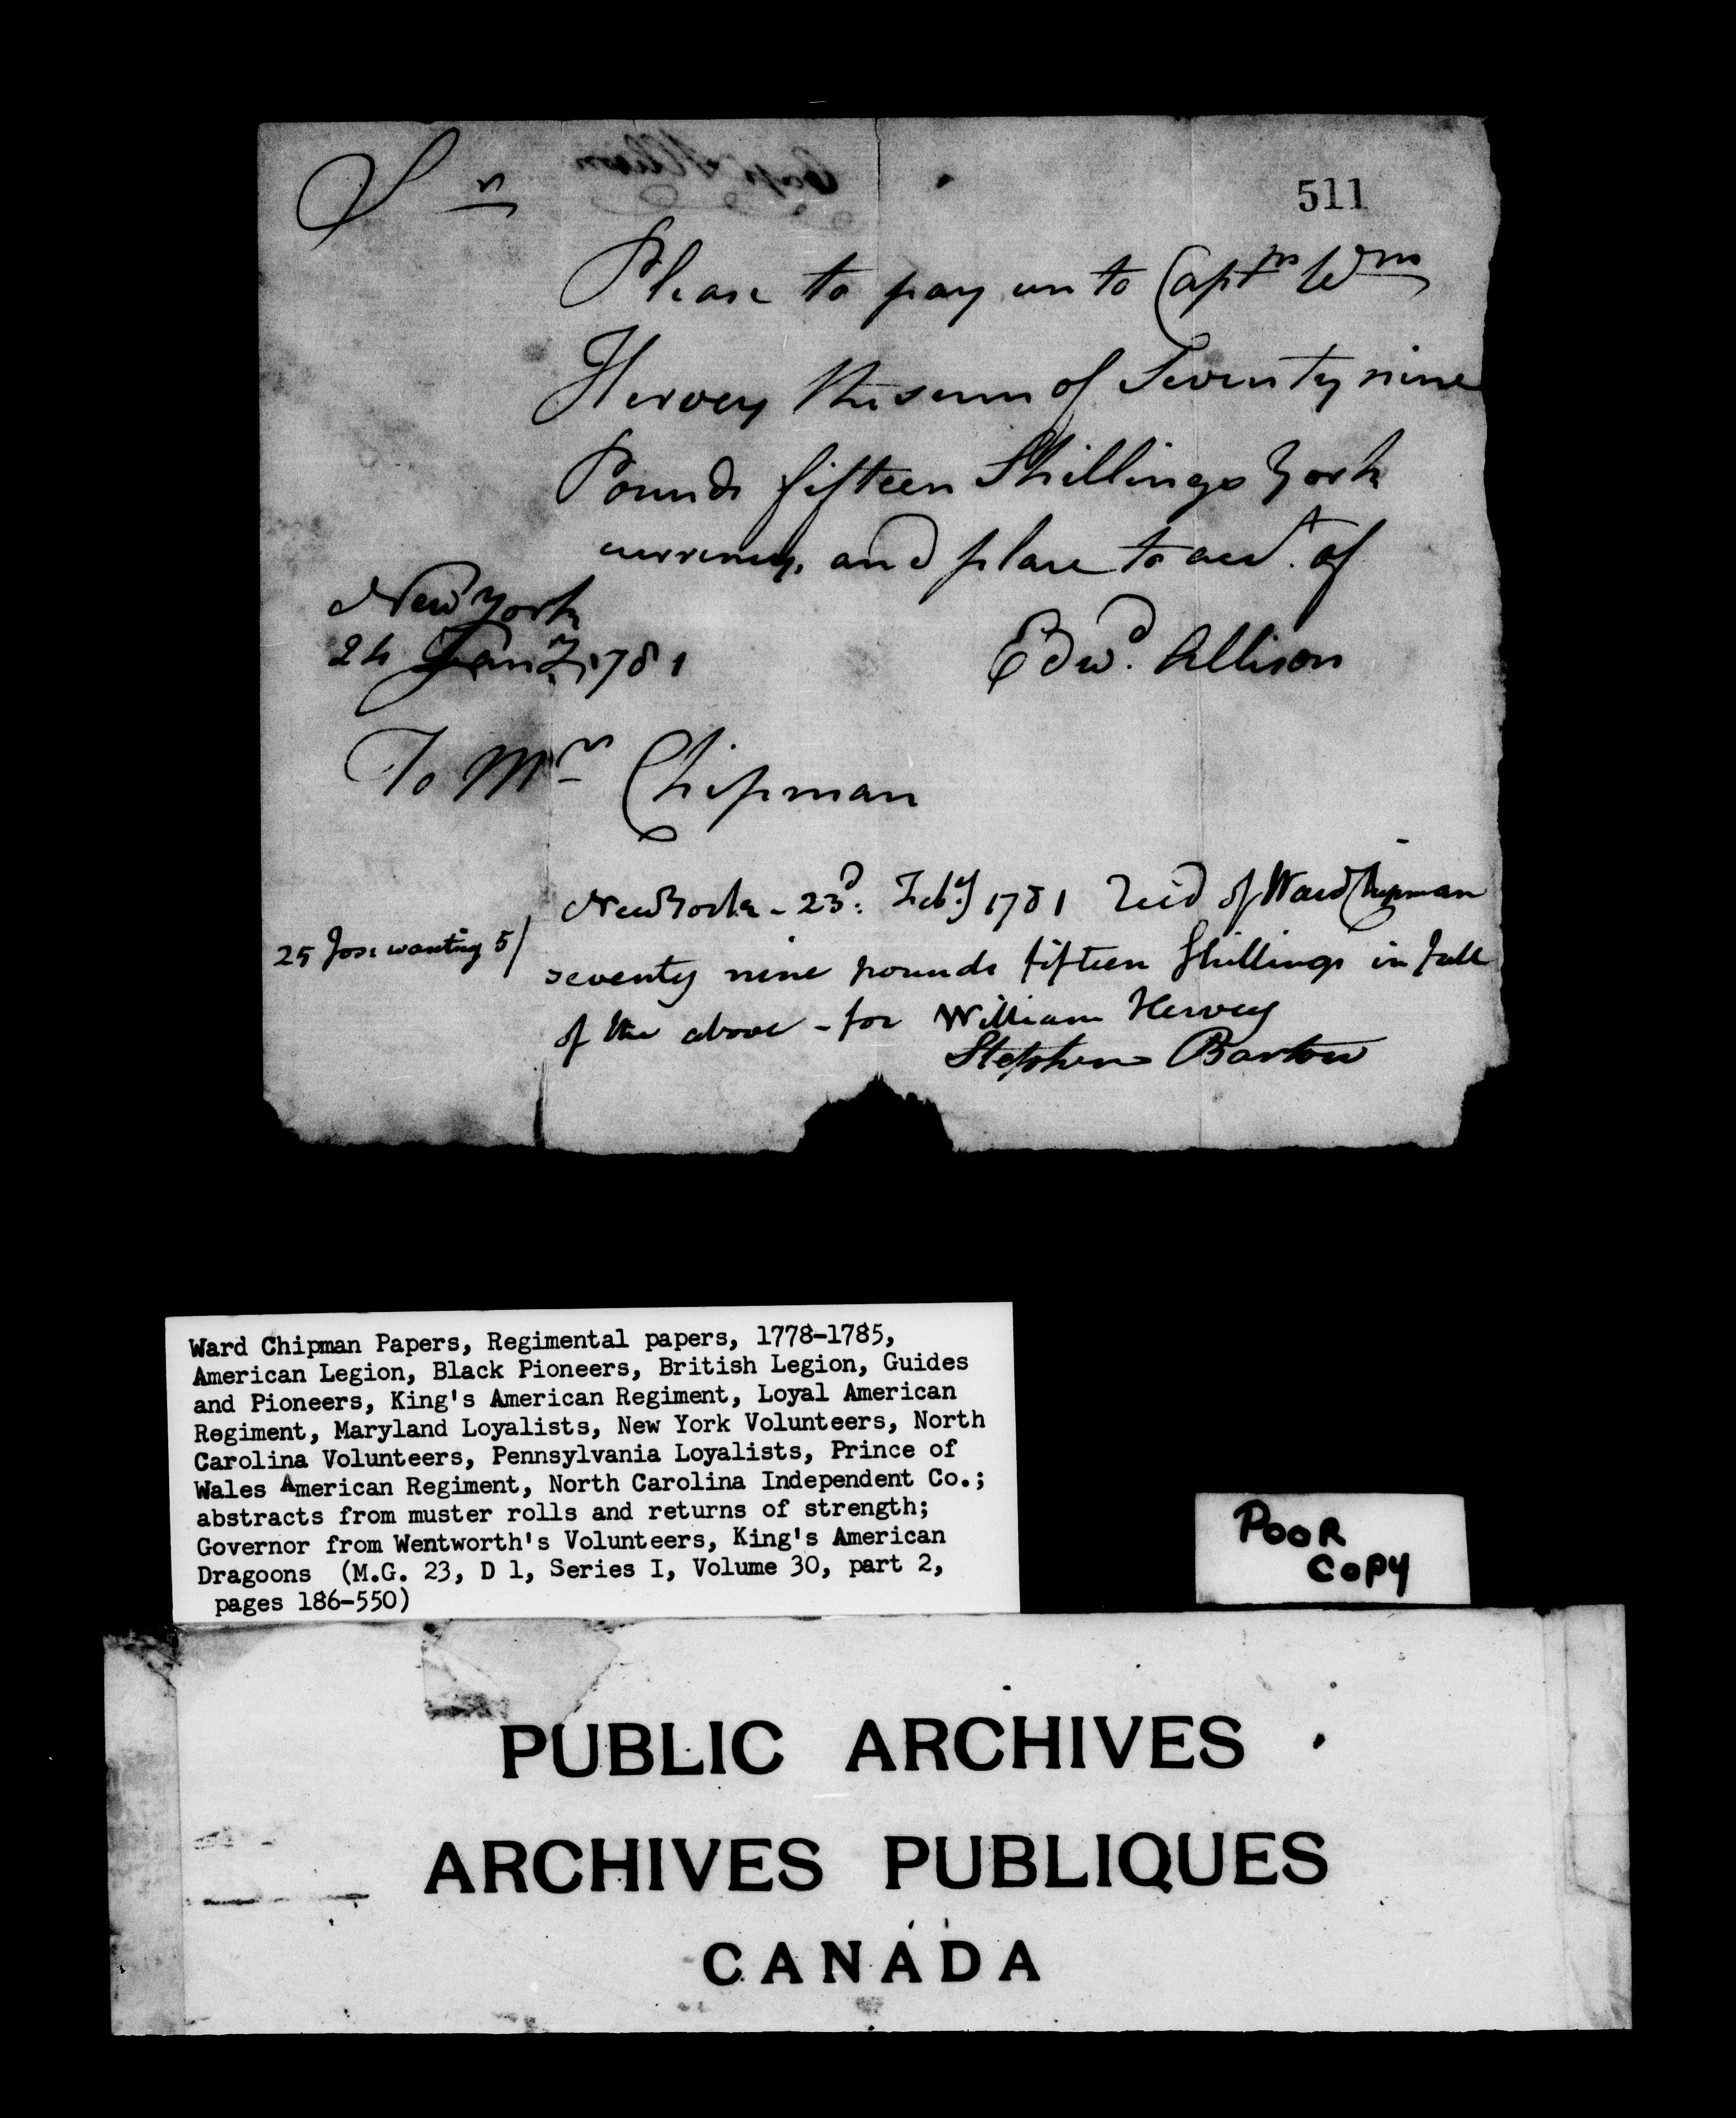 511
Sr
Please to pay unto Captn Wm
Hervey the sum of Seventy nine
Pounds fifteen Shillings York
currency, and place to acct. of
Edwd. Allison
New York
24 Jany. 1781
To Mr Chipman
New York - 23d. Feby 1781 Recd of Ward Chipman
seventy nine pounds fifteen Shillings in full
of the above - for William Hervey
Stephen
25 Jos: wanting 5/
Ward Chipman Papers, Regimental papers, 1778-1785,
American Legion, Black Pioneers, British Legion, Guides
and Pioneers, King's American Regiment, Loyal American
Regiment, Maryland Loyalists, New York Volunteers, North
Carolina Volunteers, Pennsylvania Loyalists, Prince of
Wales American Regiment, North Carolina Independent Co.;
abstracts from muster rolls and returns of strength;
Governor from Wentworth's Volunteers, King's American
Dragoons (M.G. 23, D 1, Series I, Volume 30, part 2,
pages 186-550)
POOR
COPY
PUBLIC ARCHIVES
ARCHIVES PUBLIQUES
CANADA